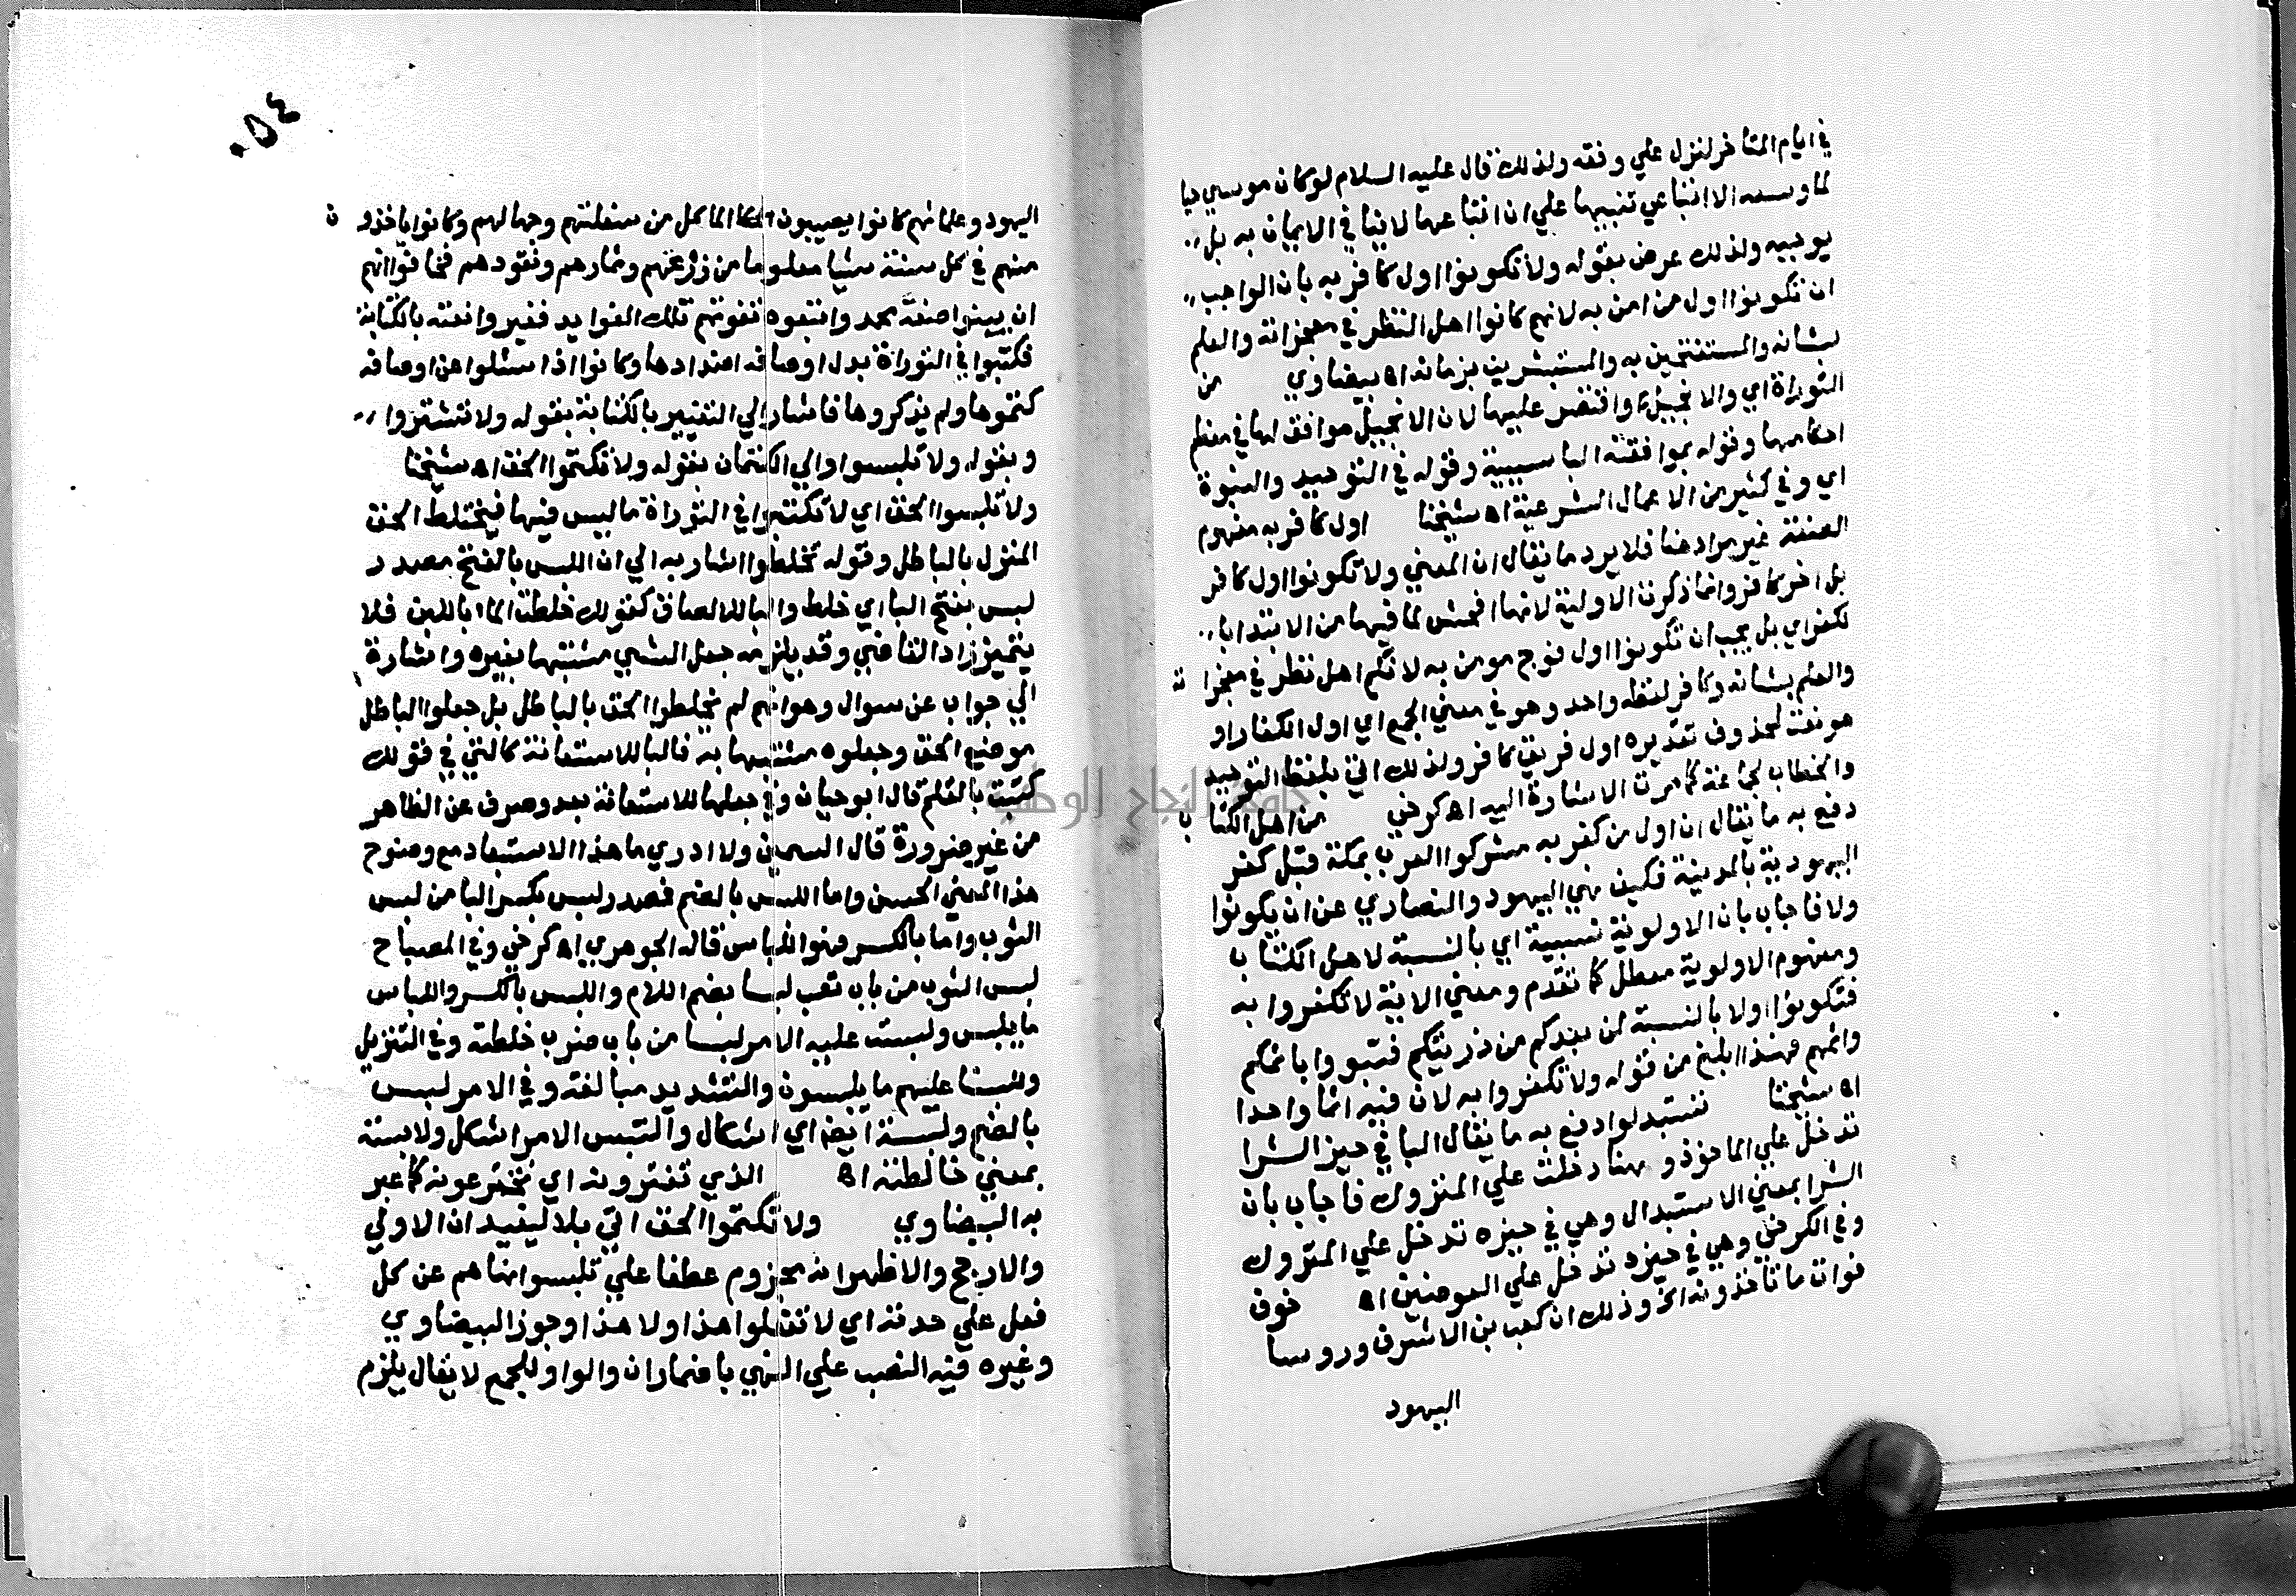 في ايام المتأخر لنزل علي وفقه ولذلك قال عليه السلام لو كان موسي حيا
لما وسعه الا اتباعي تنبيها علي ان اتباعها لا ينافي الايمان به بل
يوجبه ولذلك عرض بقوله ولا تكونوا اول كافر به بان الواجب
ان تكونوا اول من امن به لانهم كانوا اهل النظر في معجزاته والعلم
بشانه والمستفتحين به والمستبشرين بزمانه اه بيضاوي من
التوراة اي والانجيل واقتصر عليها لان الانجيل موافق لها في معظم
احكامها وقوله بموافقته الباسببية وقوله في التوحيد والنبوة
اي وفي كثير من الاعمال الشرعية اه شيخنا اول كافر به مفهوم
الصفة غير مراد هنا فلا يرد ما يقال ان المعني ولا تكونوا اول كافر
بل اخر كافر وانما ذكرت الاولية لانها افحش لما فيها من الابتدا با
لكفر اي بل يجب ان تكونوا اول فوج مومن به لانكم اهل نظر في معجزا ته
والعلم بشانه وكافر لفظه واحد وهو في معني الجمع اي اول الكفار او
هو نعت لمحذوف تقديره اول فريق كافر ولذلك اتي بلفظ التوحيد
والخطاب لجماعة كما مرت الاشارة اليه اه كرخي من اهل الكتا ب
دفع به ما يقال ان اول من كفر به مشركوا العرب بمكة قبل كفر
اليهود به بالمدينة فكيف نهي اليهود والنصاري عن ان يكونوا
ولا فاجاب بان الاولوية نسبية اي بالنسبة لاهل الكتا ب
ومفهوم الاولوية معطل كما تقدم ومعني الاية لا تكفروا به
فتكونوا اولا بالنسبة لمن بعدكم من ذريتكم فتبوا باثمكم
واثمهم فهذا ابلغ من قوله ولا تكفروا به لان فيه اثما واحدا
اه شيخنا تستبدلوا دفع به ما يقال البا في حيز الشرا
تدخل علي الماخوذ وهنا دخلت علي المتروك فاجاب بان
الشرا بمعني الاستبدال وهي في حيزه تدخل علي المتروك
وفي الكرخي وهي في حيزه تدخل علي العوضين اه خوف
فوات ما تأخذونه الخ وذلك ان كعب بن الاشرف وروسا
اليهود
٠٥٤
اليهود وعلمائهم كانوا يصيبون المآكل من سفلتهم وجهالهم وكانوا ياخذو ن
منهم في كل سنة شيا معلوما من زرعهم وثمارهم ونقودهم فخافوا انهم
ان بينوا صفة محمد واتبعوه تفوتهم تلك الفوايد فغيروا نعته بالكتابة
فكتبوا في التوراة بدل اوصافه اضدادها وكانوا اذا سئلوا عن اوصافه
كتموها ولم يذكروها فاشار الي التغيير بالكتابة بقوله ولا تشتروا
وبقوله ولا تلبسوا والي الكتمان بقوله ولا تكتموا الحق اه شيخنا
ولا تلبسوا الحق اي لا تكتبوا في التوراة ما ليس فيها فيختلط الحق
المنزل بالباطل وقوله تخلطوا اشار به الي ان اللبس بالفتح مصدر
لبس بفتح البا اي خلط والبا للالصاق كقولك خلطت الما باللبن فلا
يتميز زاد القاضي وقد يلزمه جعل الشي مشتبها بغيره واشارة
الي جواب عن سوال وهو انهم لم يخلطوا الحق بالباطل بل جعلوا الباطل
موضع الحق وجعلوه مشتبها به فالبا للاستعانة كالتي في قولك
كتبت بالقلم قال ابو حيان وفي جعلها للاستعانة بعد وصرف عن الظاهر
من غير ضرورة قال السمين ولا ادري ما هذا الاستبعاد مع وضوح
هذا المعني الحسن واما اللبس بالضم فمصدر لبس بكسر البا من لبس
الثوب واما بالكسر فهو اللباس قاله الجوهري اه كرخي وفي المصباح
لبس الثوب من باب تعب لبسا بضم اللام واللبس بالكسر واللباس
ما يلبس ولبست عليه الامر لبسا من باب ضرب خلطته وفي التنزيل
وللبسنا عليهم ما يلبسون والتشديد مبالغة وفي الامر لبس
بالضم ولبسة ايضا اي اشكال والتبس الامر اشكل ولابسته
بمعني خالطته اه الذي تفترونه اي تخترعونه كما عبر
به البيضاوي ولا تكتموا الحق اتي بلا ليفيد ان الاولي
والارجح والاظهر انه مجزوم عطفا علي تلبسوا نهاهم عن كل
فعل علي حدته اي لا تفعلوا هذا ولا هذا وجوز البيضاوي
وغيره فيه النصب علي النهي باضمار ان والواو للجمع لا يقال يلزم